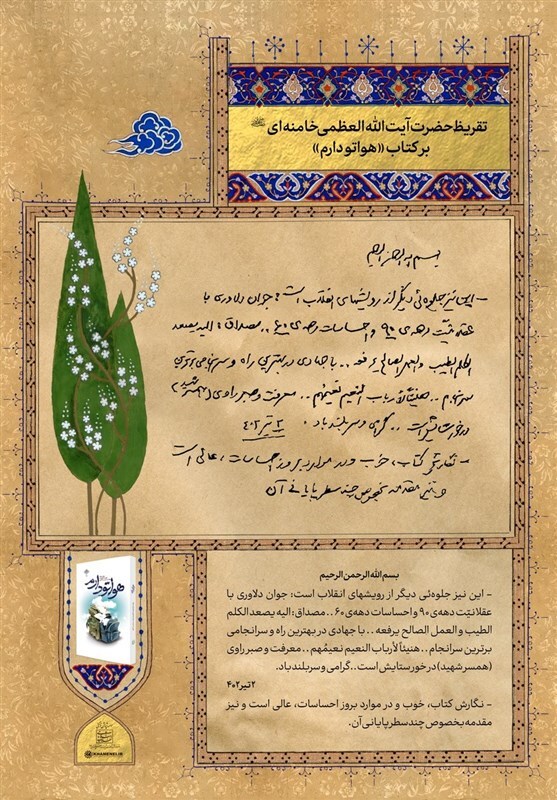 تقریظ حضرت آیت الله العظمی خامنه‌ای
بر کتاب «هواتو دارم»
بسم الله الرحمن الرحیم
- این نیز جلوه‌ئی دیگر از رویشهای انقلاب است: جوان دلاوری با
عقلانیّت دهه‌ی ۹۰ و احساسات دهه‌ی ۶۰ .. مصداق: الیه یصعد
الکلم الطیب و العمل الصالح یرفعه .. با جهادی در بهترین راه و سرانجامی برترین
سرانجام .. هنیئاً لأرباب النعیم نعیمُهم .. معرفت و صبر راوی (همسر شهید)
در خور ستایش است .. گرامی و سربلند باد.
۲ تیر ۴۰۲
- نگارش کتاب، خوب و در موارد بروز احساسات، عالی است
و نیز مقدمه بخصوص چند سطر پایانی آن
بسم الله الرحمن الرحیم
- این نیز جلوه‌ئی دیگر از رویشهای انقلاب است: جوان دلاوری با
عقلانیّت دهه‌ی ۹۰ و احساسات دهه‌ی ۶۰ .. مصداق: الیه یصعد الکلم
الطیب و العمل الصالح یرفعه .. با جهادی در بهترین راه و سرانجامی
برترین سرانجام .. هنیئاً لأرباب النعیم نعیمُهم .. معرفت و صبر راوی
(همسر شهید) در خور ستایش است .. گرامی و سربلند باد.
۲ تیر ۴۰۲
- نگارش کتاب، خوب و در موارد بروز احساسات، عالی است و نیز
مقدمه بخصوص چند سطر پایانی آن.
هواتو دارم
KHAMENEI.IR